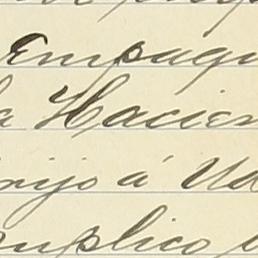 Empaqu
a Hacien
rijo á Ud
suplico